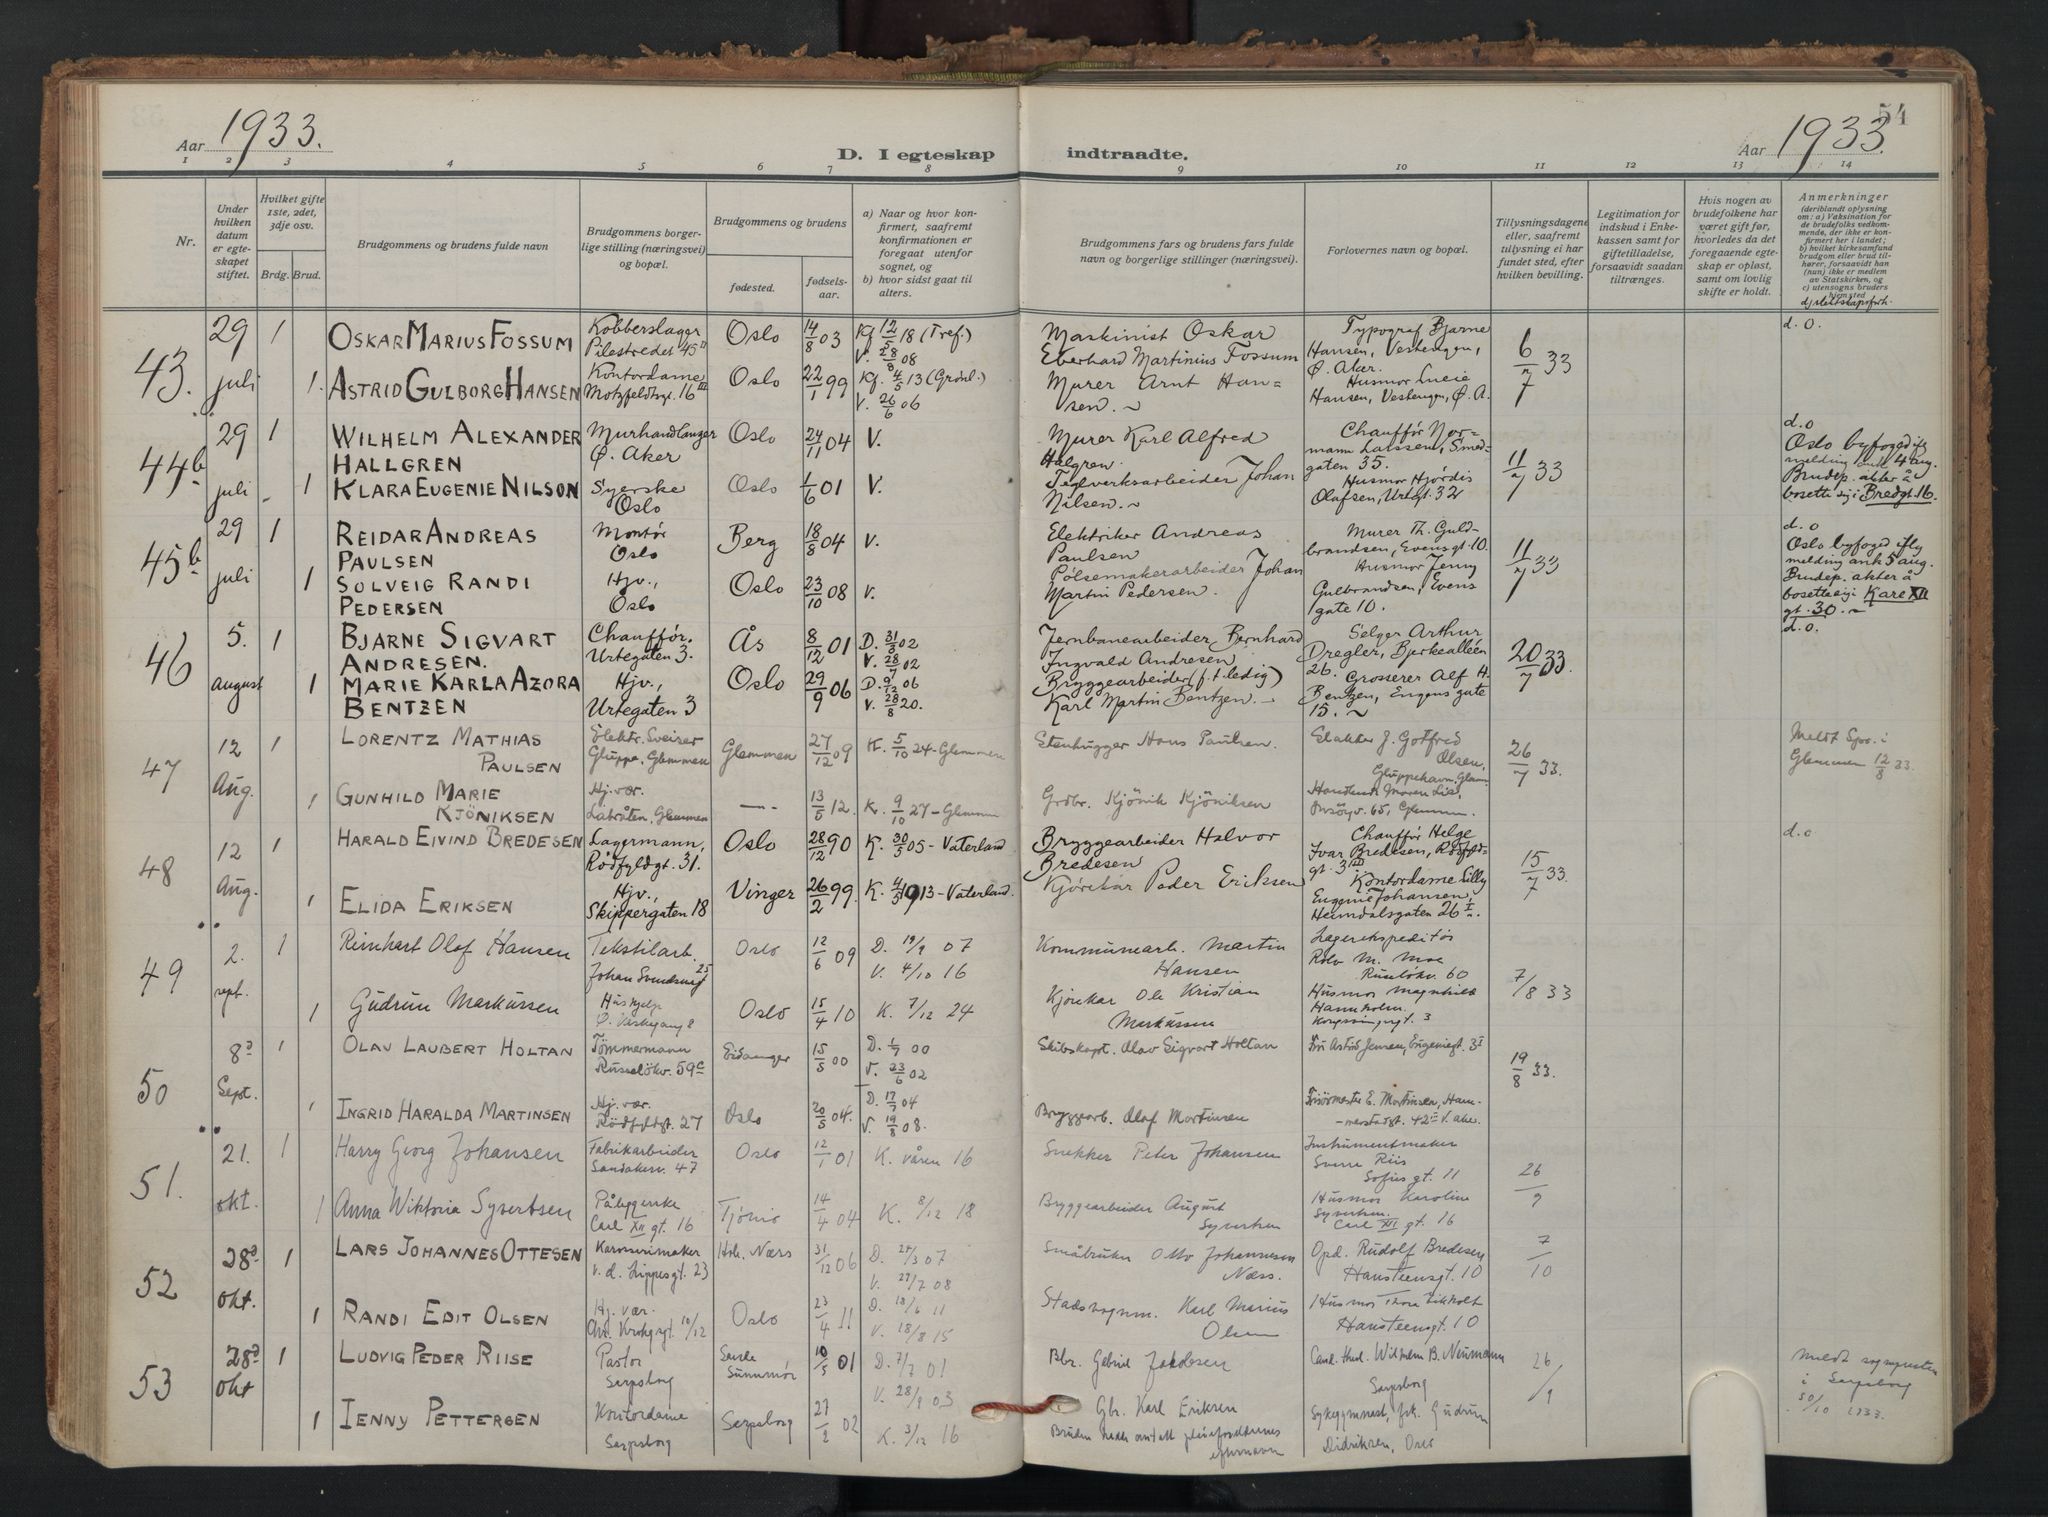 54
Aar 1933.
D. I egteskap indtraadte.
Aar 1933.
1 2 3 4 5 6 7 8 9 10 11 12 13 14
Nr.
Under hvilken datum er egteskapet stiftet.
Hvilket gifte 1ste, 2det, 3dje osv.
Brdg. Brud.
Brudgommens og brudens fulde navn
Brudgommens borgerlige stilling (næringsvei) og bopæl.
Brudgommens og brudens
fødested.
fødselsaar.
a) Naar og hvor konfirmert, saafremt konfirmationen er foregaat utenfor sognet, og
b) hvor sidst gaat til alters.
Brudgommens fars og brudens fars fulde navn og borgerlige stillinger (næringsvei).
Forlovernes navn og bopæl.
Tillysningsdagene eller, saafremt tillysning ei har fundet sted, efter hvilken bevilling.
Legitimation for indskud i Enkekassen samt for giftetilladelse, forsaavidt saadan tiltrænges.
Hvis nogen av brudefolkene har været gift før, hvorledes da det foregaaende egteskap er opløst, samt om lovlig skifte er holdt.
Anmerkninger
(deriblandt oplysning om: a) Vaksination for de brudefolks vedkommende, der ikke er konfirmert her i landet; b) hvilket kirkesamfund brudgom eller brud tilhører, forsaavidt han (hun) ikke er medlem av Statskirken, og c) utensogns bruders hjemsted
43. 29 juli 1 OSKAR MARIUS FOSSUM Kobberslager Pilestredet 45 II Oslo 14/8 03 Kf. 12/5 18 (Tref.) V. 28/8 08
Maskinist Oskar Eberhard Martinius Fossum Typograf Bjarne Hansen, Vestengen, Ø. Aker. 6/7 33 d. o.
1. ASTRID GULBORG HANSEN Kontordame Motzfeldtsgt. 16 III Oslo 22/1 99 Kf. 4/5 13 (Grønl.) V. 26/6 06
Murer Arnt Hansen. Husmor Lucie Hansen, Vestengen, Ø. A.
44b 29 juli 1 WILHELM ALEXANDER HALLGREN Murhandlanger Ø. Aker Oslo 24/11 04 V.
Murer Karl Alfred Halgren. Chauffør Normann Larssen, Smedgaten 35. 11/7 33
d. o Oslo byfoged ifl melding ank 4 aug. Brudep. akter å bosette sig i Bredgt. 16.
1 KLARA EUGENIE NILSON Syerske Oslo Oslo 1/6 01 V.
Teglverksarbeider Johan Nilsen. Husmor Hjørdis Olafsen, Urtegt. 32
45b 29 juli 1 REIDAR ANDREAS PAULSEN Montør Oslo Berg 18/8 04 V.
Elektriker Andreas Paulsen Murer Th. Guldbrandsen, Evensgt. 10. 11/7 33
d. o Oslo byfoged ifly melding ank 5 aug. Brudep. akter å bosette sig i Karl XII gt. 30.
1 SOLVEIG RANDI PEDERSEN Hjv., Oslo Oslo 23/10 08 V.
Pølsemakerarbeider Johan Martin Pedersen. Husmor Jenny Gulbrandsen, Evens gate 10.
46 5. august 1 BJARNE SIGVART ANDRESEN. Chauffør. Urtegaten 3. Ås 8/12 01 D. 31/3 02 V. 28/9 02
Jernbanearbeider Bernhard Ingvald Andresen Selger Arthur Dregler, Bjerkealléen 26. 20/7 33. d. o.
1 MARIE KARLA AZORA BENTZEN Hjv., Urtegaten 3 Oslo 29/9 06 D. 9/12 06 V. 28/8 20.
Bryggearbeider (f. t. ledig) Karl Martin Bentzen. Grosserer Alf H. Bentzen, Eugens gate 15.
47 12 Aug. 1 LORENTZ MATHIAS PAULSEN Elektr. Sveiser Gluppe, Glemmen Glemmen 27/12 09 K. 5/10 24 - Glemmen
Stenhugger Hans Paulsen. J. Gotfred Olsen, Gluppehavn, Glem. 26/7 33. Meldt Spr. i Glemmen 12/8 33.
1 GUNHILD MARIE KJÖNIKSEN Hj. vær. Glemmen —"— 13/5 12. K. 9/10 27 - Glemmen
Grdbr. Kjönik Kjöniksen 65, Glemmen.
48 12 Aug. 1 HARALD EIVIND BREDESEN Lagermann, Rødfyldgt. 31. Oslo 28/12 90 K. 30/5 05 - Vaterland
Bryggearbeider Halvor Bredesen Chauffør Helge Ivar Bredesen, Rødfyldgt. 31 III 15/7 33. d. o
1 ELIDA ERIKSEN Hjv., Skippergaten 18 Vinger 26/2 99. K. 4/5 1913 - Vaterland.
Kjørekar Peder Eriksen Kontordame Lilly Eugenie Johansen, Heimdalsgaten 26 I.
49 2. sept. 1 Reinhart Olaf Hansen Tekstilarb. Johan Svendsensv. 25 Oslo 12/6 09 D. 19/9 07 V. 4/10 16
Kommunearb. Martin Hansen Lagerekspeditør Rolv M. Moe Ruseløkv. 60 7/8 33
1 Gudrun Markussen Hushjelp Ø. Vaskegang 8 Oslo 15/4 10 K. 7/12 24
Kjørekar Ole Kristian Markussen Husmor Magnhild Hannholm. Kongssingergt. 3
50 8de Sept. 1 OLAV LAUBERT HOLTAN Tømmermann Ruseløkv. 59c Eidanger 15/5 00 D. 1/7 00 V. 23/6 02
Skibskapt. Olav Sigvart Holtan Fru Astrid Jensen, Eugeniegt. 3 I 19/8 33.
1 INGRID HARALDA MARTINSEN Hj. vær. Rødfyldgt. 27 Oslo 20/5 04. D. 17/7 04 V. 19/8 08.
Bryggearb. Olaf Martinsen Frisørmester E. Martinsen, Hammerstadgt. 42 II V. aker.
51. 21. okt. 1 Harry Georg Johansen Fabrikarbeider Sandakerv. 47 Oslo 12/1 01 K. våren 16
Snekker Peter Johansen Instrumentmaker Sverre Riis Sofies gt. 11 26/9
1 Anna Wiktoria Syvertsen Påleggerske Carl XII gt. 16 Tjömö 14/4 04 K. 8/12 18
Bryggearbeider August Syvertsen Husmor Karoline Syvertsen. Carl XII gt. 16
52 28de okt. 1 LARS JOHANNES OTTESEN Karosserimaker v. d. Lippesgt. 23 Hol. Næs 31/12 06 D. 24/3 07 V. 27/7 08
Småbruker Otto Johannesen Næss. Opd. Rudolf Bredesen Hansteensgt. 10 7/10
1 RANDI EDIT OLSEN Hj. vær. Chr. Krohgsgt. 10/12 Oslo 23/4 11 D. 18/6 11 V. 18/8 15
Karl Marius Olsen Husmor Thora Hansteensgt. 10
53 28de okt 1 LUDVIG PEDER RIISE Pastor Sarpsborg Sande Sunnmør 10/5 01 D. 7/7 01 V. 28/9 03
Gbr. Gabriel Jakobsen Cand. theol. Wilhelm B. Neumann Sarpsborg 26/9 Meldt sognepresten i Sarpsborg 30/10 1933.
1 JENNY PETTERSEN Kontordame Sarpsborg Sarpsborg 27/2 02 K. 3/12 16
Gbr. Karl Eriksen Sykegymnast, frk. Gudrun Didriksen, Oslo
Bruden hadde antatt pleieforeldrenes efternavn